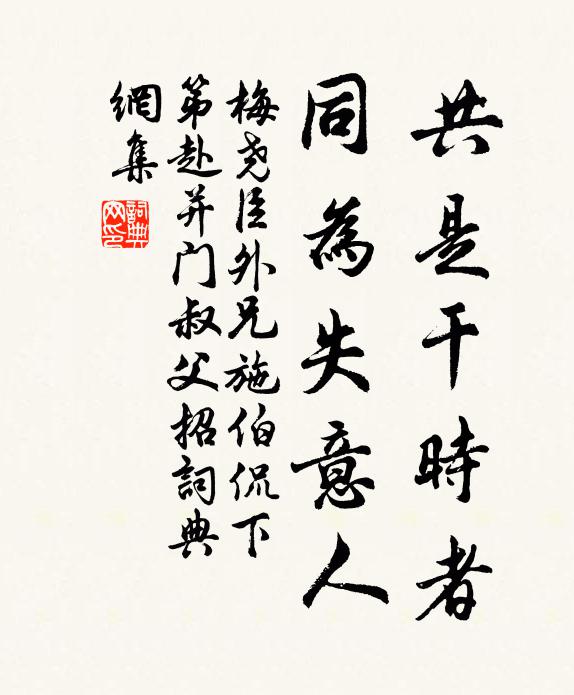 共是干時者
同為失意人
梅尧臣外兄施伯侃下
第赴并门叔父招詞典
網集
詞典网印